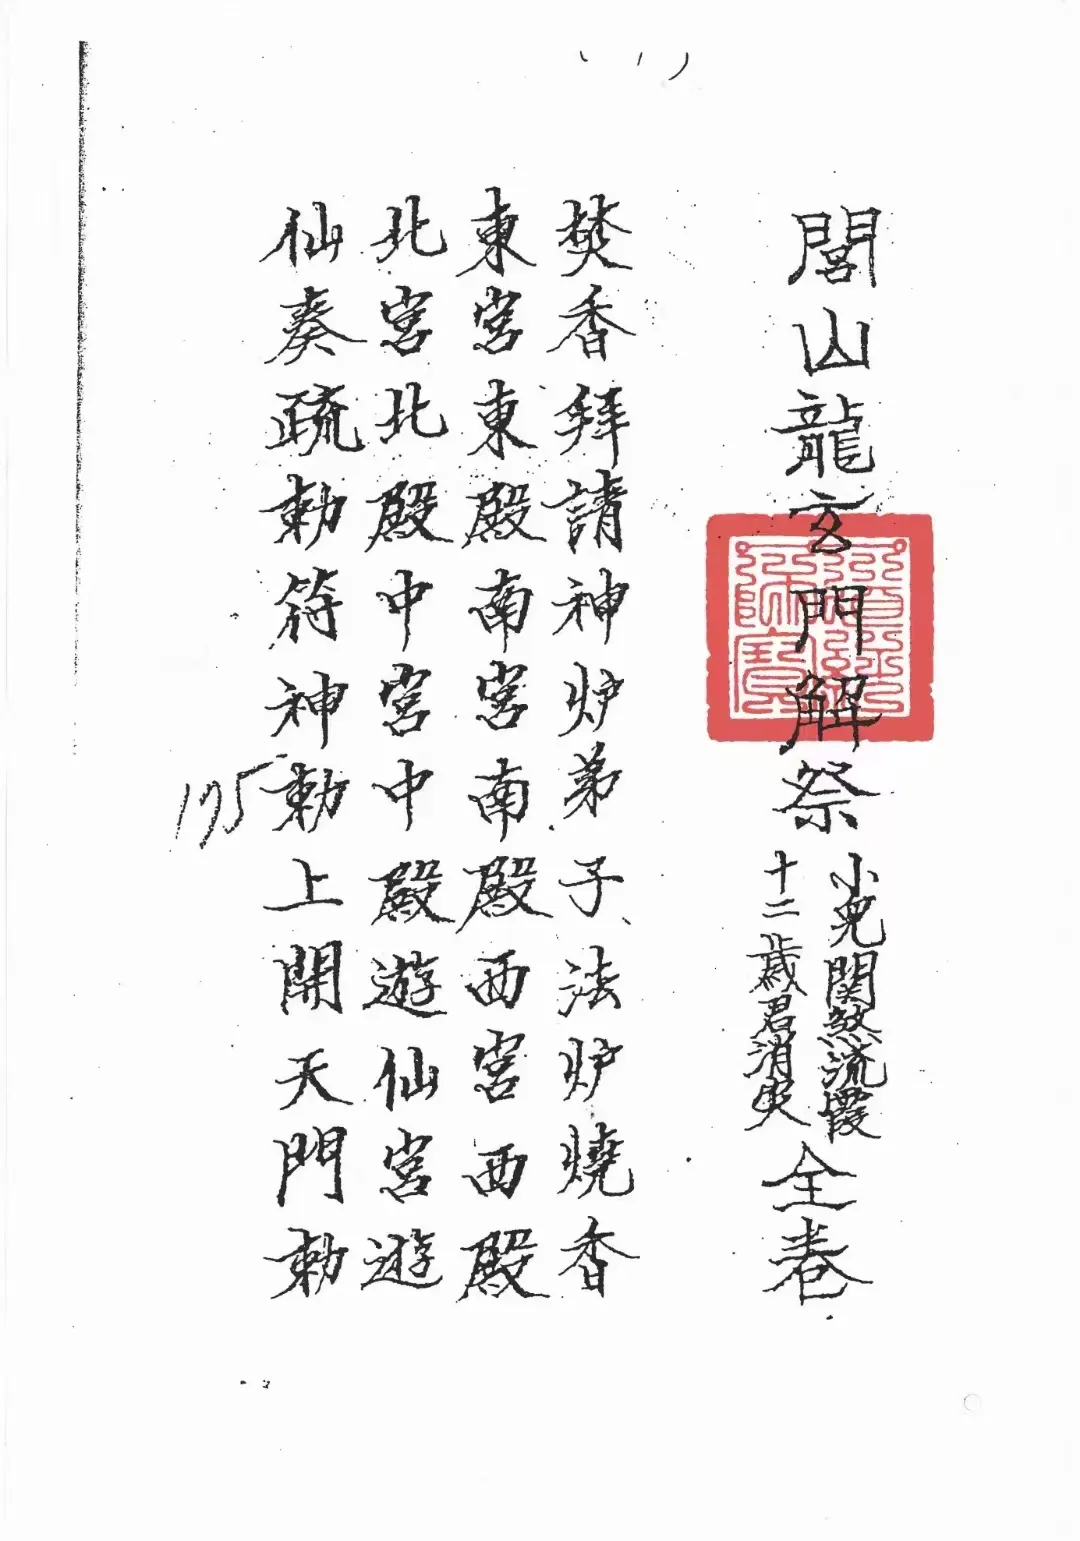 (1)
閭山龍玄門解祭
小兒関煞流霞
十二歲君消災
全卷
焚香拜請神炉弟子法炉燒香
東宮東殿南宮南殿西宮西殿
北宮北殿中宮中殿遊仙宮遊
仙奏疏勅符神勅上開天門勅
175
道經師寶